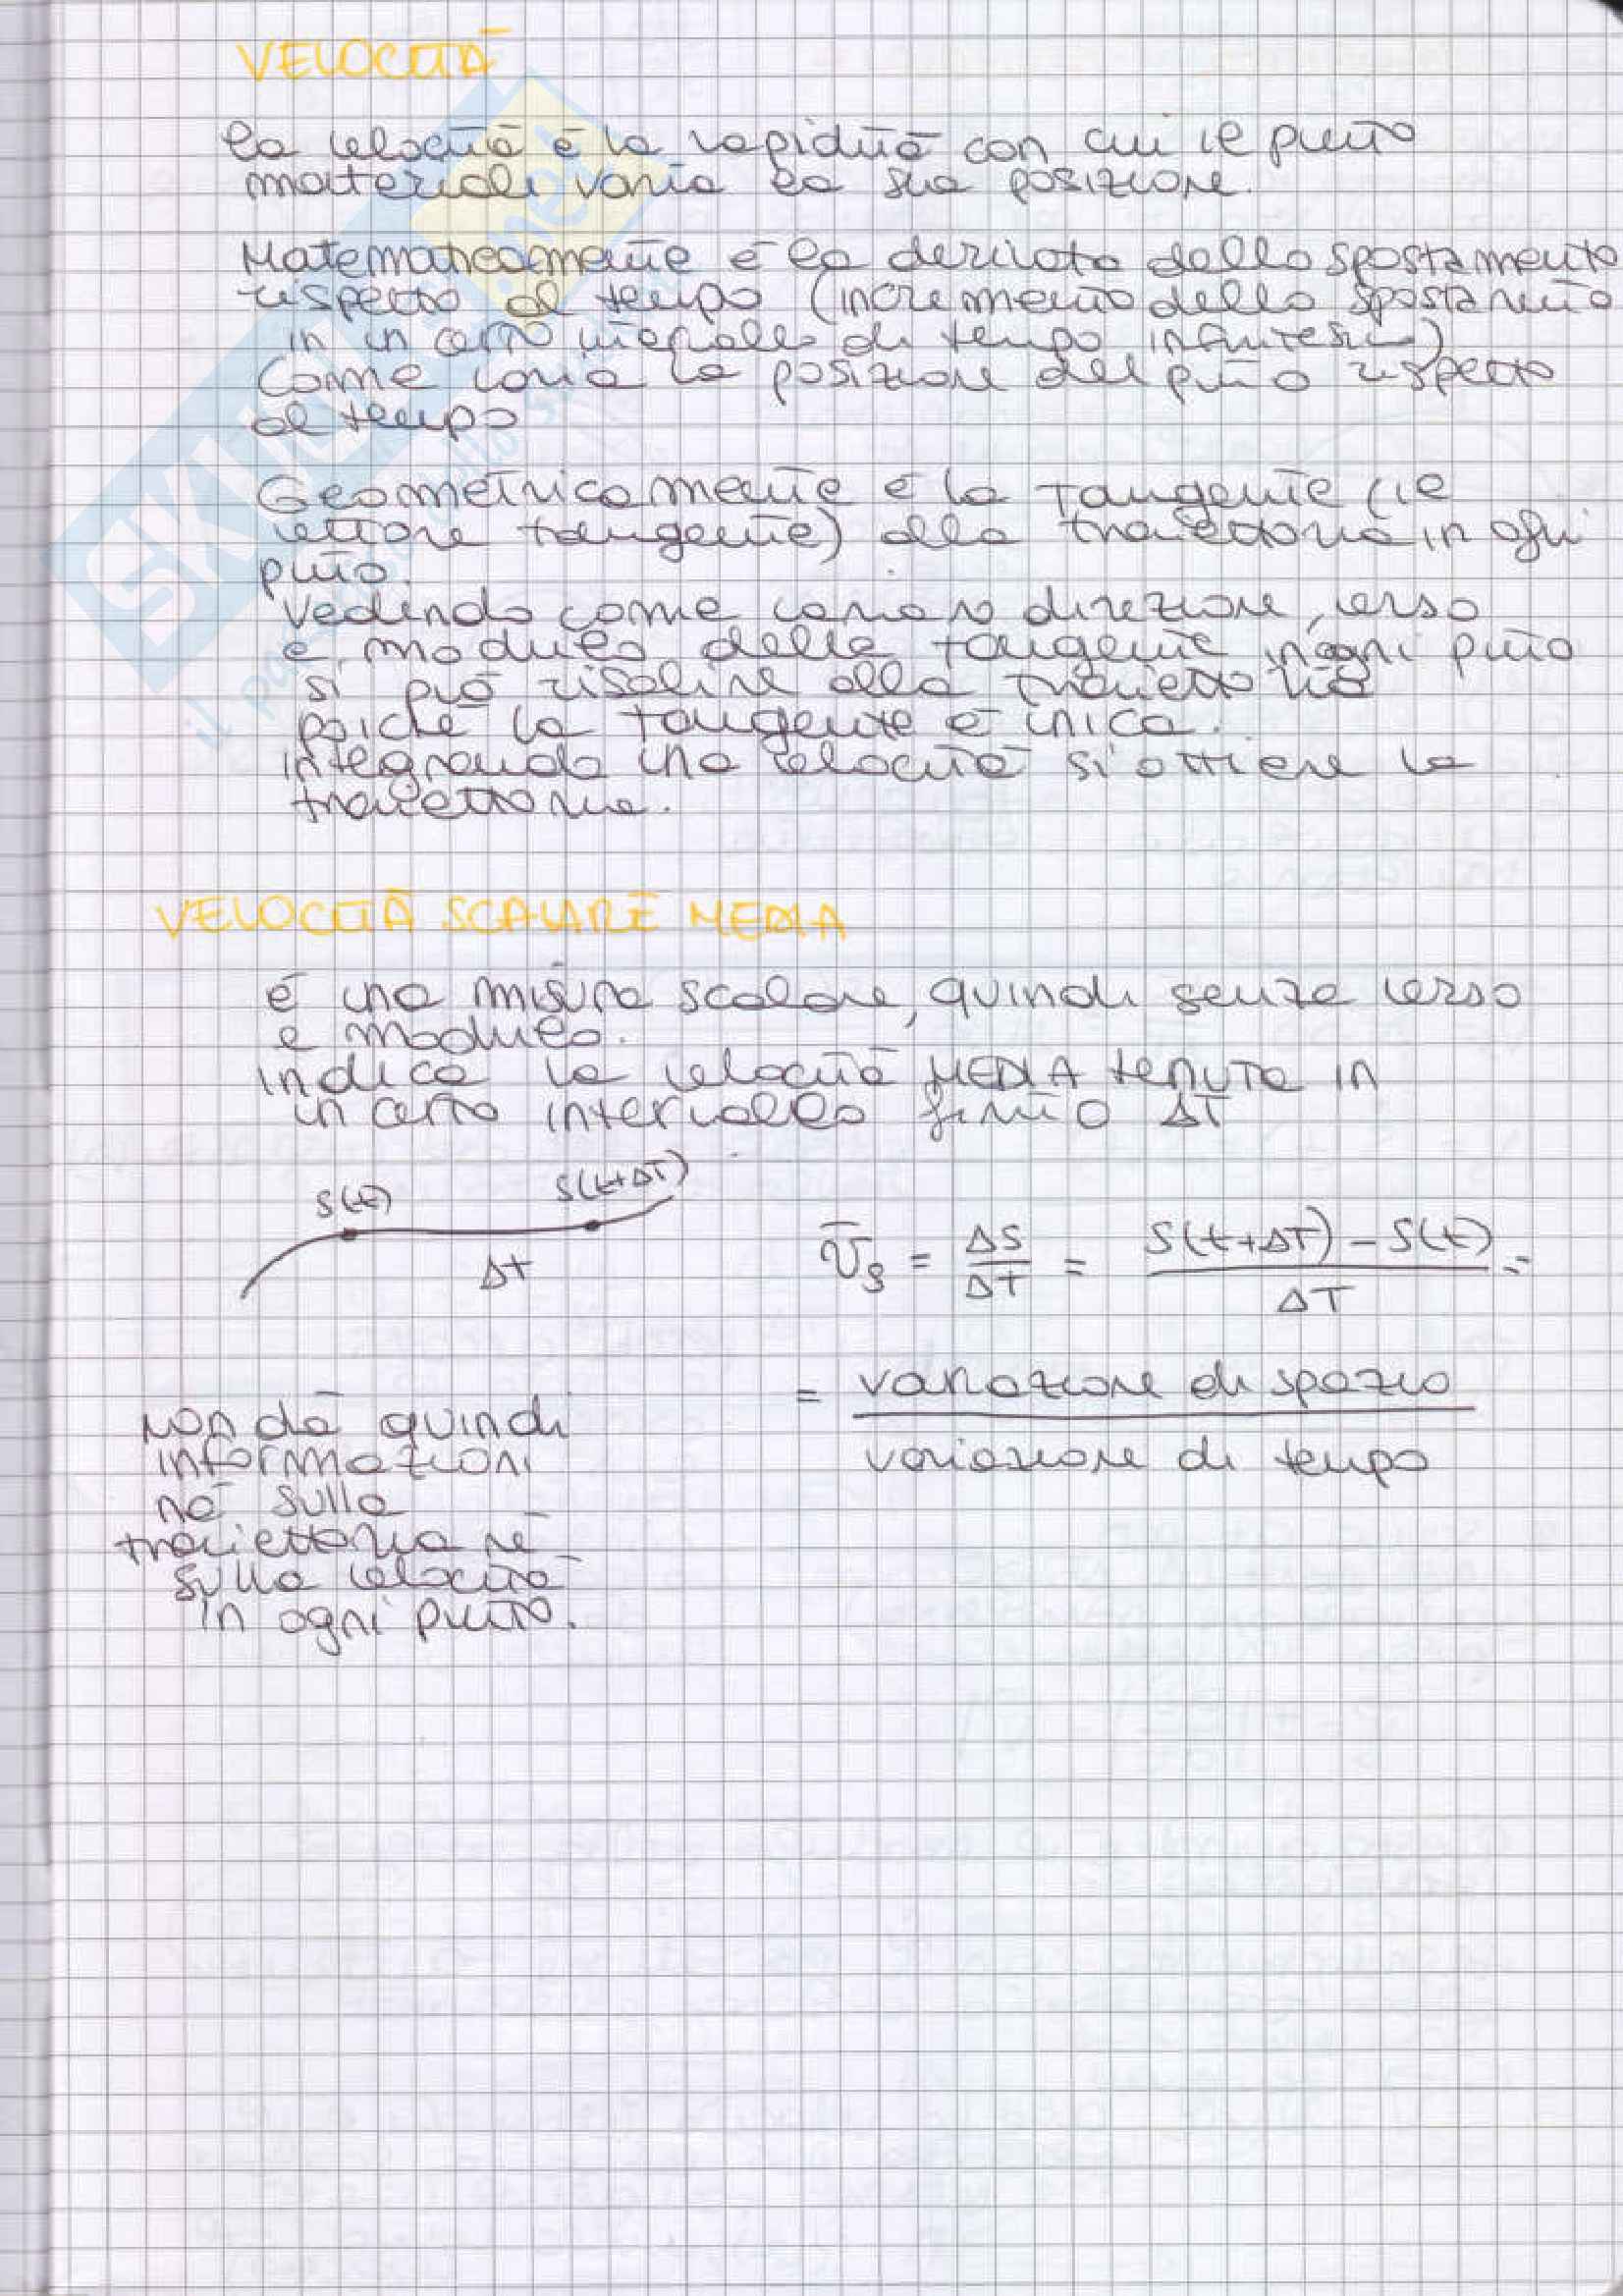 VELOCITÀ
la velocità è la rapidità con cui il punto
materiali varia la sua posizione.
Matematicamente è la derivata dello spostamento
rispetto al tempo (incremento dello spostamento
in un certo intervallo di tempo infinitesimo)
Come varia la posizione del punto rispetto
al tempo
Geometricamente è la tangente (il
vettore tangente) alla traiettoria in ogni
punto.
Vedendo come variano direzione, verso
e modulo della tangente in ogni punto
si può risalire alla traiettoria
poiché la tangente è unica.
integrando una velocità si ottiene la
traiettoria.
VELOCITÀ SCALARE MEDIA
è una misura scalare, quindi senza verso
e modulo.
indica la velocità MEDIA tenuta in
un certo intervallo finito ΔT
S(t)
S(t+ΔT)
Δt
v̄s = ΔS/ΔT = (S(t+ΔT) - S(t))/ΔT =
= variazione di spazio
variazione di tempo
non dà quindi
informazioni
né sulla
traiettoria né
sulla velocità
in ogni punto.
SKUOLA.net